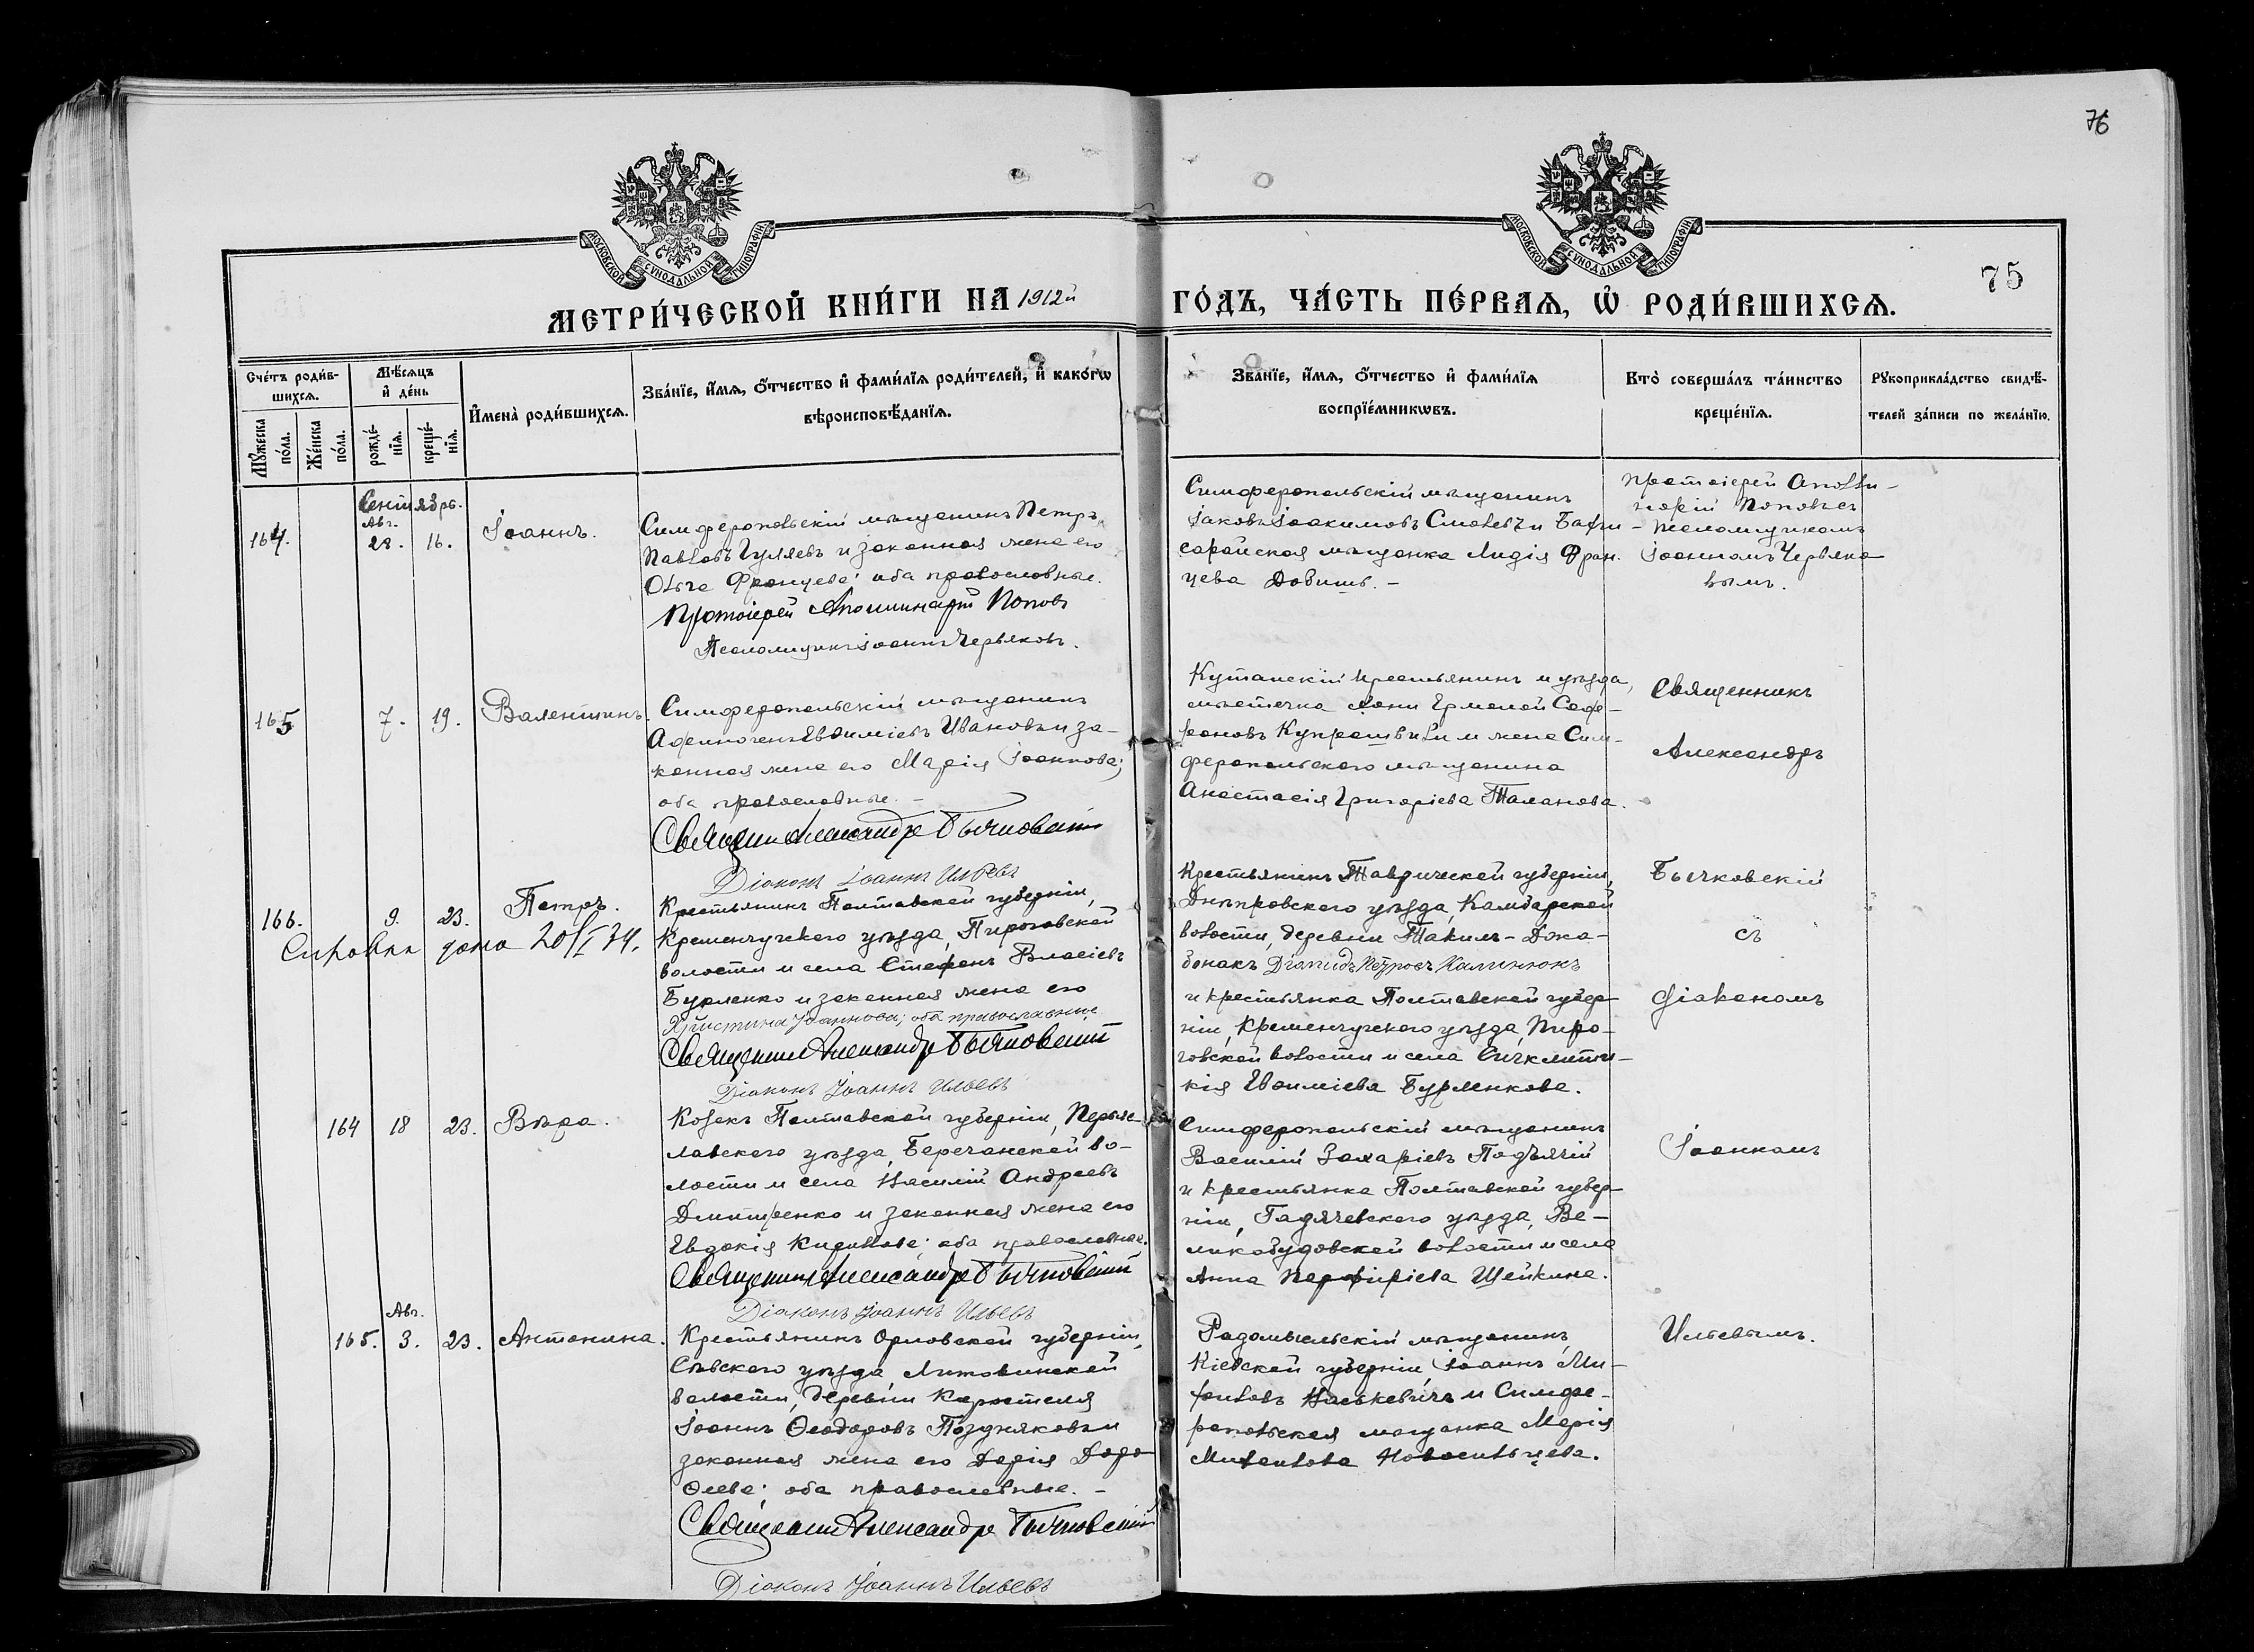 76
МОСКОВСКОЙ СУНОДАЛЬНОЙ ТИПОГРАФІИ
МОСКОВСКОЙ СУНОДАЛЬНОЙ ТИПОГРАФІИ
75
МЕТРИ́ЧЕСКОЙ КНИ́ГИ НА 1912й ГО́ДЪ, ЧА́СТЬ ПЕ́РВАѦ, Ѡ҆ РОДИ́ВШИХСѦ.
Сче́тъ роди́в-
шихсѧ.
Мꙋ́жеска по́ла.
Же́нска по́ла.
Мѣ́сѧцъ
и҆ де́нь
рожде́-
нїѧ.
креще́-
нїѧ.
И҆мена̀ роди́вшихсѧ.
Зва́нїе, и҆́мѧ, ѻ҆́тчество и҆ фами́лїѧ роди́телей, и҆ како́гѡ
вѣроисповѣ́данїѧ.
Зва́нїе, и҆́мѧ, ѻ҆́тчество и҆ фами́лїѧ
воспрїе́мникѡвъ.
Кто̀ соверша́лъ та́инство
креще́нїѧ.
Рꙋкоприкла́дство свидѣ́-
телей за́писи по жела́нїю.
Сентябрь.
164.
Авг.
28. 16.
Іоаннъ.
Симферопольскій мѣщанинъ Петръ
Павловъ Гуляевъ и законная жена его
Ольга Францева; оба православные.
Протоіерей Аполлинарій Поповъ
Псаломщикъ Іоаннъ Червяковъ.
Симферопольскій мѣщанинъ
Іаковъ Іоакимовъ Смолевъ и Бахчи-
сарайская мѣщанка Лидія Фран-
цева Довишъ. –
Протоіерей Аполли-
нарій Поповъ съ
псаломщикомъ
Іоанномъ Червяко-
вымъ.
165 7. 19. Валентинъ.
Симферопольскій мѣщанинъ
Афиногенъ Евѳиміевъ Ивановъ и за-
конная жена его Марія Іоаннова;
оба православные. –
Священникъ Александръ Бычковскій
Діаконъ Іоаннъ Ильевъ
Кутаискій крестьянинъ и уѣзда,
мѣстечка Они Ермолай Соф-
роновъ Купрашвили и жена Сим-
феропольскаго мѣщанина
Анастасія Григоріева Таманова.
Священникъ
Александръ
166. 9. 23. Петръ.
Справка дана 20/I 74.
Крестьянинъ Полтавской губерніи,
Кременчугскаго уѣзда, Пироговской
волости и села Стефанъ Власіевъ
Бурленко и законная жена его
Христина Іоаннова; оба православные
Священникъ Александръ Бычковскій
Діаконъ Іоаннъ Ильевъ
Крестьянинъ Таврической губерніи,
Днѣпровскаго уѣзда, Камбарской
волости, деревни Такилъ-Джа-
бонакъ Діомидъ Петровъ Калинюкъ
и крестьянка Полтавской губер-
ніи, Кременчугскаго уѣзда, Пиро-
говской волости и села Синклити-
кія Евѳиміева Бурленкова.
Бычковскій
съ
діакономъ
164 18 23. Вѣра.
Козакъ Полтавской губерніи, Переяс-
лавскаго уѣзда, Березанской во-
лости и села Василій Андреевъ
Дмитренко и законная жена его
Евдокія Кириллова; оба православные.
Священникъ Александръ Бычковскій
Діаконъ Іоаннъ Ильевъ
Симферопольскій мѣщанинъ
Василій Захаріевъ Подъячій
и крестьянка Полтавской губер-
ніи, Гадячевскаго уѣзда, Ве-
ликобудовской волости и села
Анна Порфиріева Шейкина.
Іоанномъ
Авг.
165. 3. 23. Антонина.
Крестьянинъ Орловской губерніи,
Сѣвскаго уѣзда, Литовинской
волости, деревни Коростеля
Іоаннъ Ѳеодоровъ Поздняковъ и
законная жена его Дарія Доро-
ѳеева; оба православные. –
Священникъ Александръ Бычковскій
Діаконъ Іоаннъ Ильевъ
Радомысльскій мѣщанинъ,
Кіевской губерніи, Іоаннъ Ми-
роновъ Васькевичъ и Симфе-
ропольская мѣщанка Марія
Михаилова Новосильцева.
Ильевымъ.